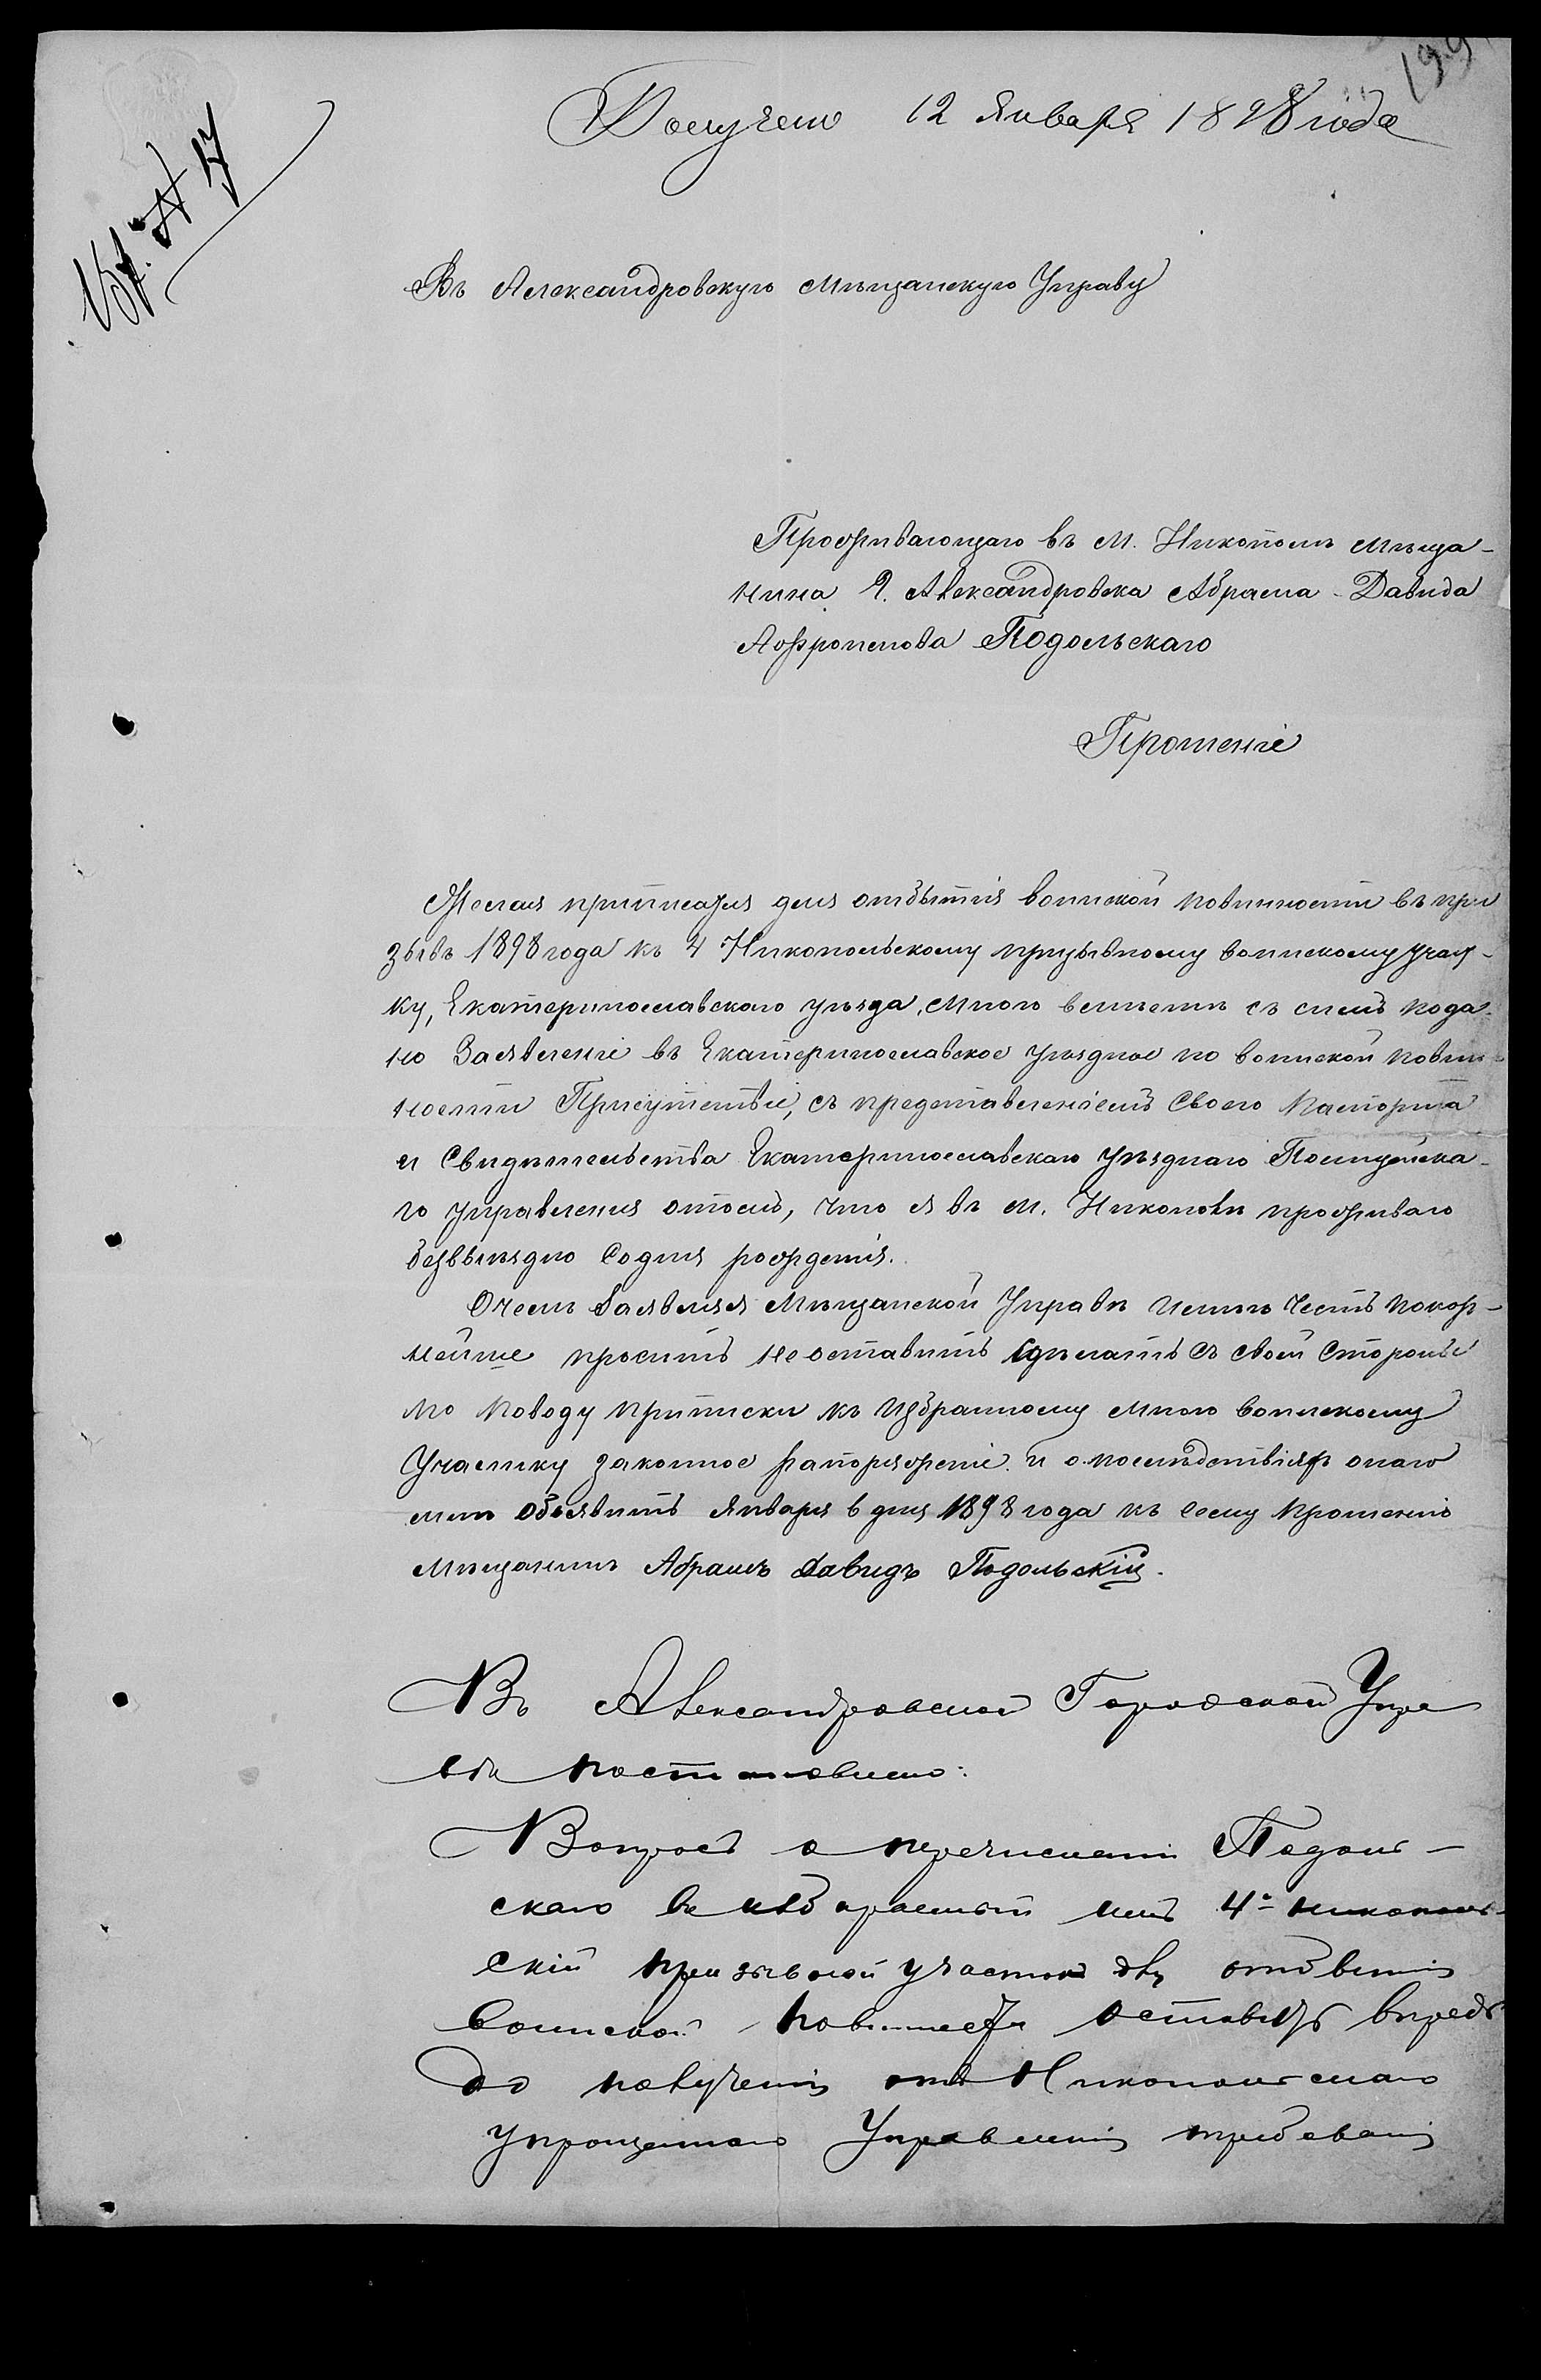 199
Вх. № 17
Получено 12 Января 1898 года
Въ Александровскую Мѣщанскую Управу
Проживающаго въ м. Никополѣ мѣща-
нина г. Александровска Абрама-Давида
Подольскаго
Прошеніе
Желая приписатся для отбытія воинской повинности въ при
зывъ 1898 года къ 4 Никопольскому призывному воинскому участ-
ку, Екатеринославскаго уѣзда, мною вмѣстѣ съ симъ пода-
но Заявленіе въ Екатеринославское уѣздное по воинской повин-
ности Присутствіе, съ представленіемъ своего Паспорта
и Свидѣтельства Екатеринославскаго уѣзднаго Полицейска-
го управленія отомъ, что я въ м. Никополѣ проживаю
безвыѣздно содня рожденія.
Очемъ Заявляя Мѣщанской Управѣ имѣю честь покор-
нейше просить неоставить сдѣлать съ своей стороны
по поводу приписки къ избранному мною воинскому
Участку законное распоряженіе и о послѣдствіяхъ онаго
мнѣ объявить Января 6 дня 1898 года къ сему прошенію
мѣщанинъ Абрамъ Давидъ Подольскій.
Въ Александровской Городской Упра
вѣ постановлено:
Вопросъ о перечисленіи Подоль-
скаго въ избранный имъ 4й Никополь-
скій призывной участокъ для отбытія
воинской повинности оставить впредь
до полученія отъ Никопольскаго
упрощеннаго Управленія требованія